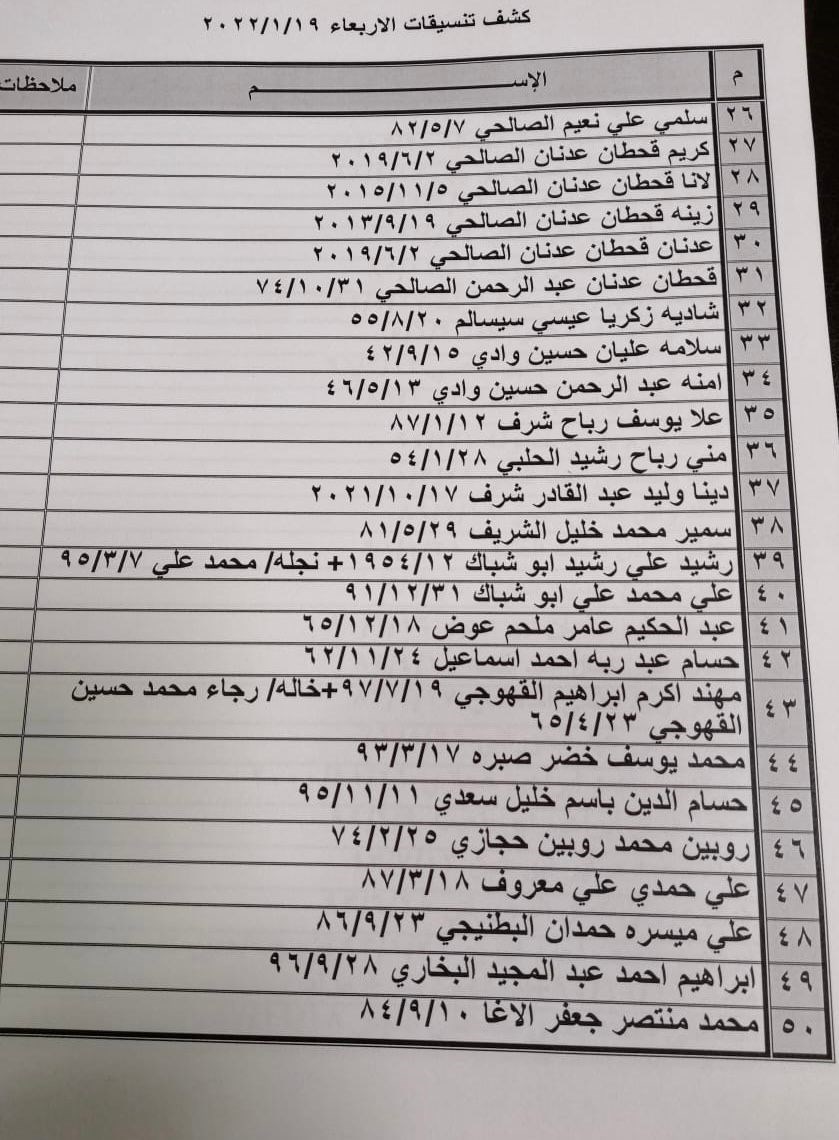 كشف تنسيقات الاربعاء ٢٠٢٢/١/١٩
م الإســــــم ملاحظات
٢٦ سلمي علي نعيم الصالحي ٨٢/٥/٧
٢٧ كريم قحطان عدنان الصالحي ٢٠١٩/٦/٢
٢٨ لانا قحطان عدنان الصالحي ٢٠١٥/١١/٥
٢٩ زينه قحطان عدنان الصالحي ٢٠١٣/٩/١٩
٣٠ عدنان قحطان عدنان الصالحي ٢٠١٩/٦/٢
٣١ قحطان عدنان عبد الرحمن الصالحي ٧٤/١٠/٣١
٣٢ شاديه زكريا عيسي سيسالم ٥٥/٨/٢٠
٣٣ سلامه عليان حسين وادي ٤٢/٩/١٥
٣٤ امنه عبد الرحمن حسين وادي ٤٦/٥/١٣
٣٥ علا يوسف رباح شرف ٨٧/١/١٢
٣٦ مني رباح رشيد الحلبي ٥٤/١/٢٨
٣٧ دينا وليد عبد القادر شرف ٢٠٢١/١٠/١٧
٣٨ سمير محمد خليل الشريف ٨١/٥/٢٩
٣٩ رشيد علي رشيد ابو شباك ١٩٥٤/١٢+ نجله/ محمد علي ٩٥/٣/٧
٤٠ علي محمد علي ابو شباك ٩١/١٢/٣١
٤١ عبد الحكيم عامر ملحم عوض ٦٥/١٢/١٨
٤٢ حسام عبد ربه احمد اسماعيل ٦٢/١١/٢٤
٤٣ مهند اكرم ابراهيم القهوجي ٩٧/٧/١٩+خاله/ رجاء محمد حسين
القهوجي ٦٥/٤/٢٣
٤٤ محمد يوسف خضر صبره ٩٣/٣/١٧
٤٥ حسام الدين باسم خليل سعدي ٩٥/١١/١١
٤٦ روبين محمد روبين حجازي ٧٤/٢/٢٥
٤٧ علي حمدي علي معروف ٨٧/٣/١٨
٤٨ علي ميسره حمدان البطنيجي ٨٦/٩/٢٣
٤٩ ابراهيم احمد عبد المجيد البخاري ٩٦/٩/٢٨
٥٠ محمد منتصر جعفر الاغا ٨٤/٩/١٠